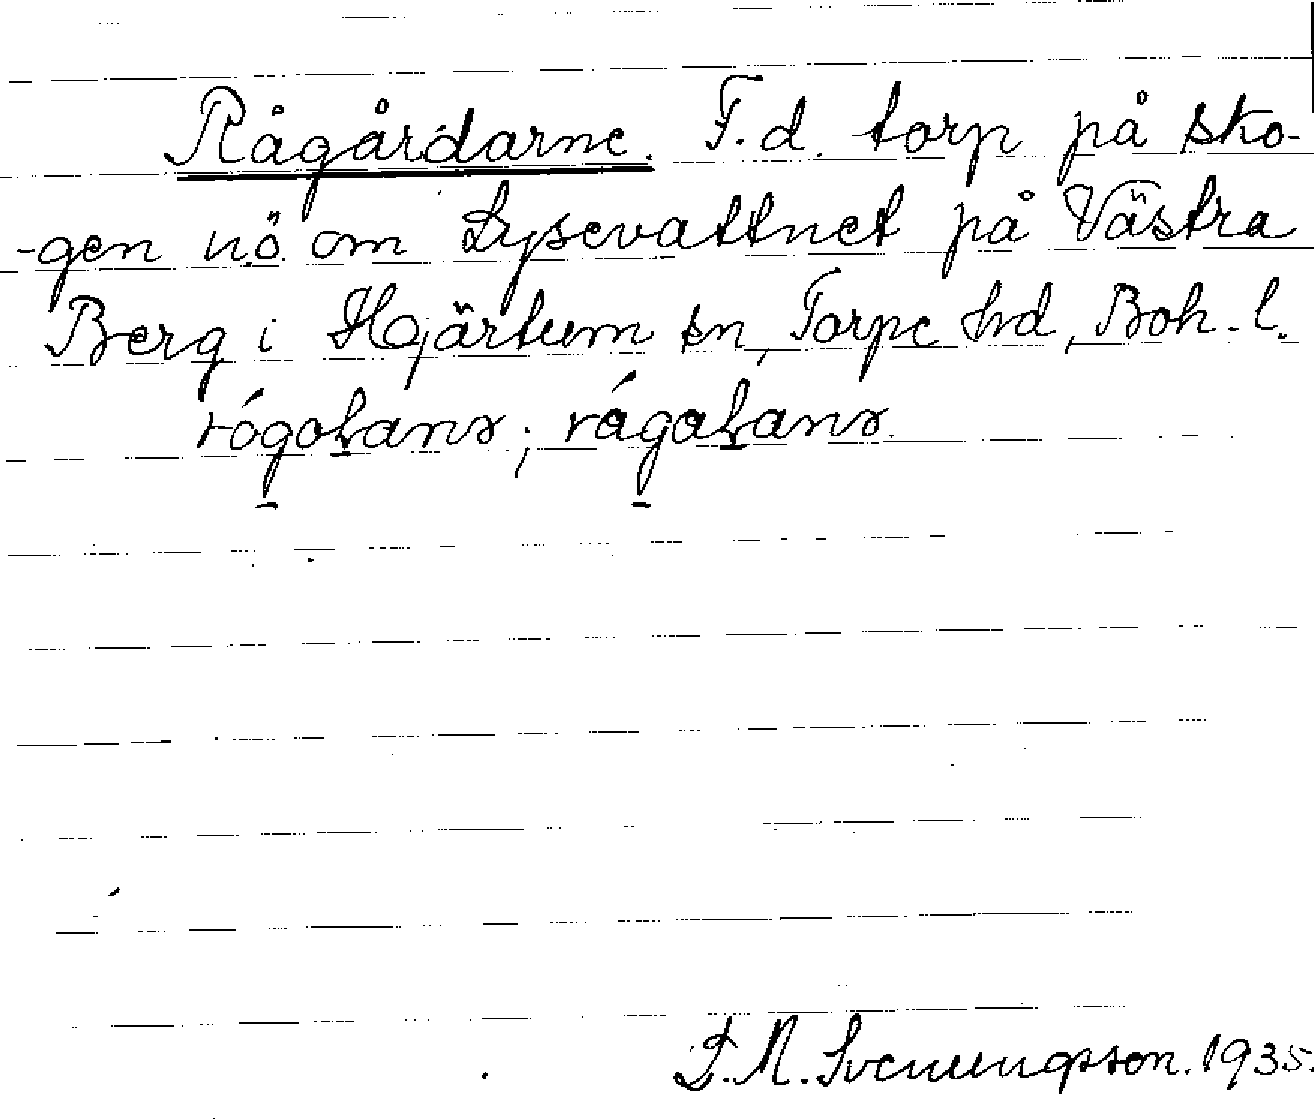 Rågårdarne. F.d. torp på sko-
-gen n.ö. om Lysevattnet på Västra
Berg i Hjärtum sn, Torpe hd, Boh. l.
S. M. Svenungsson. 1935.